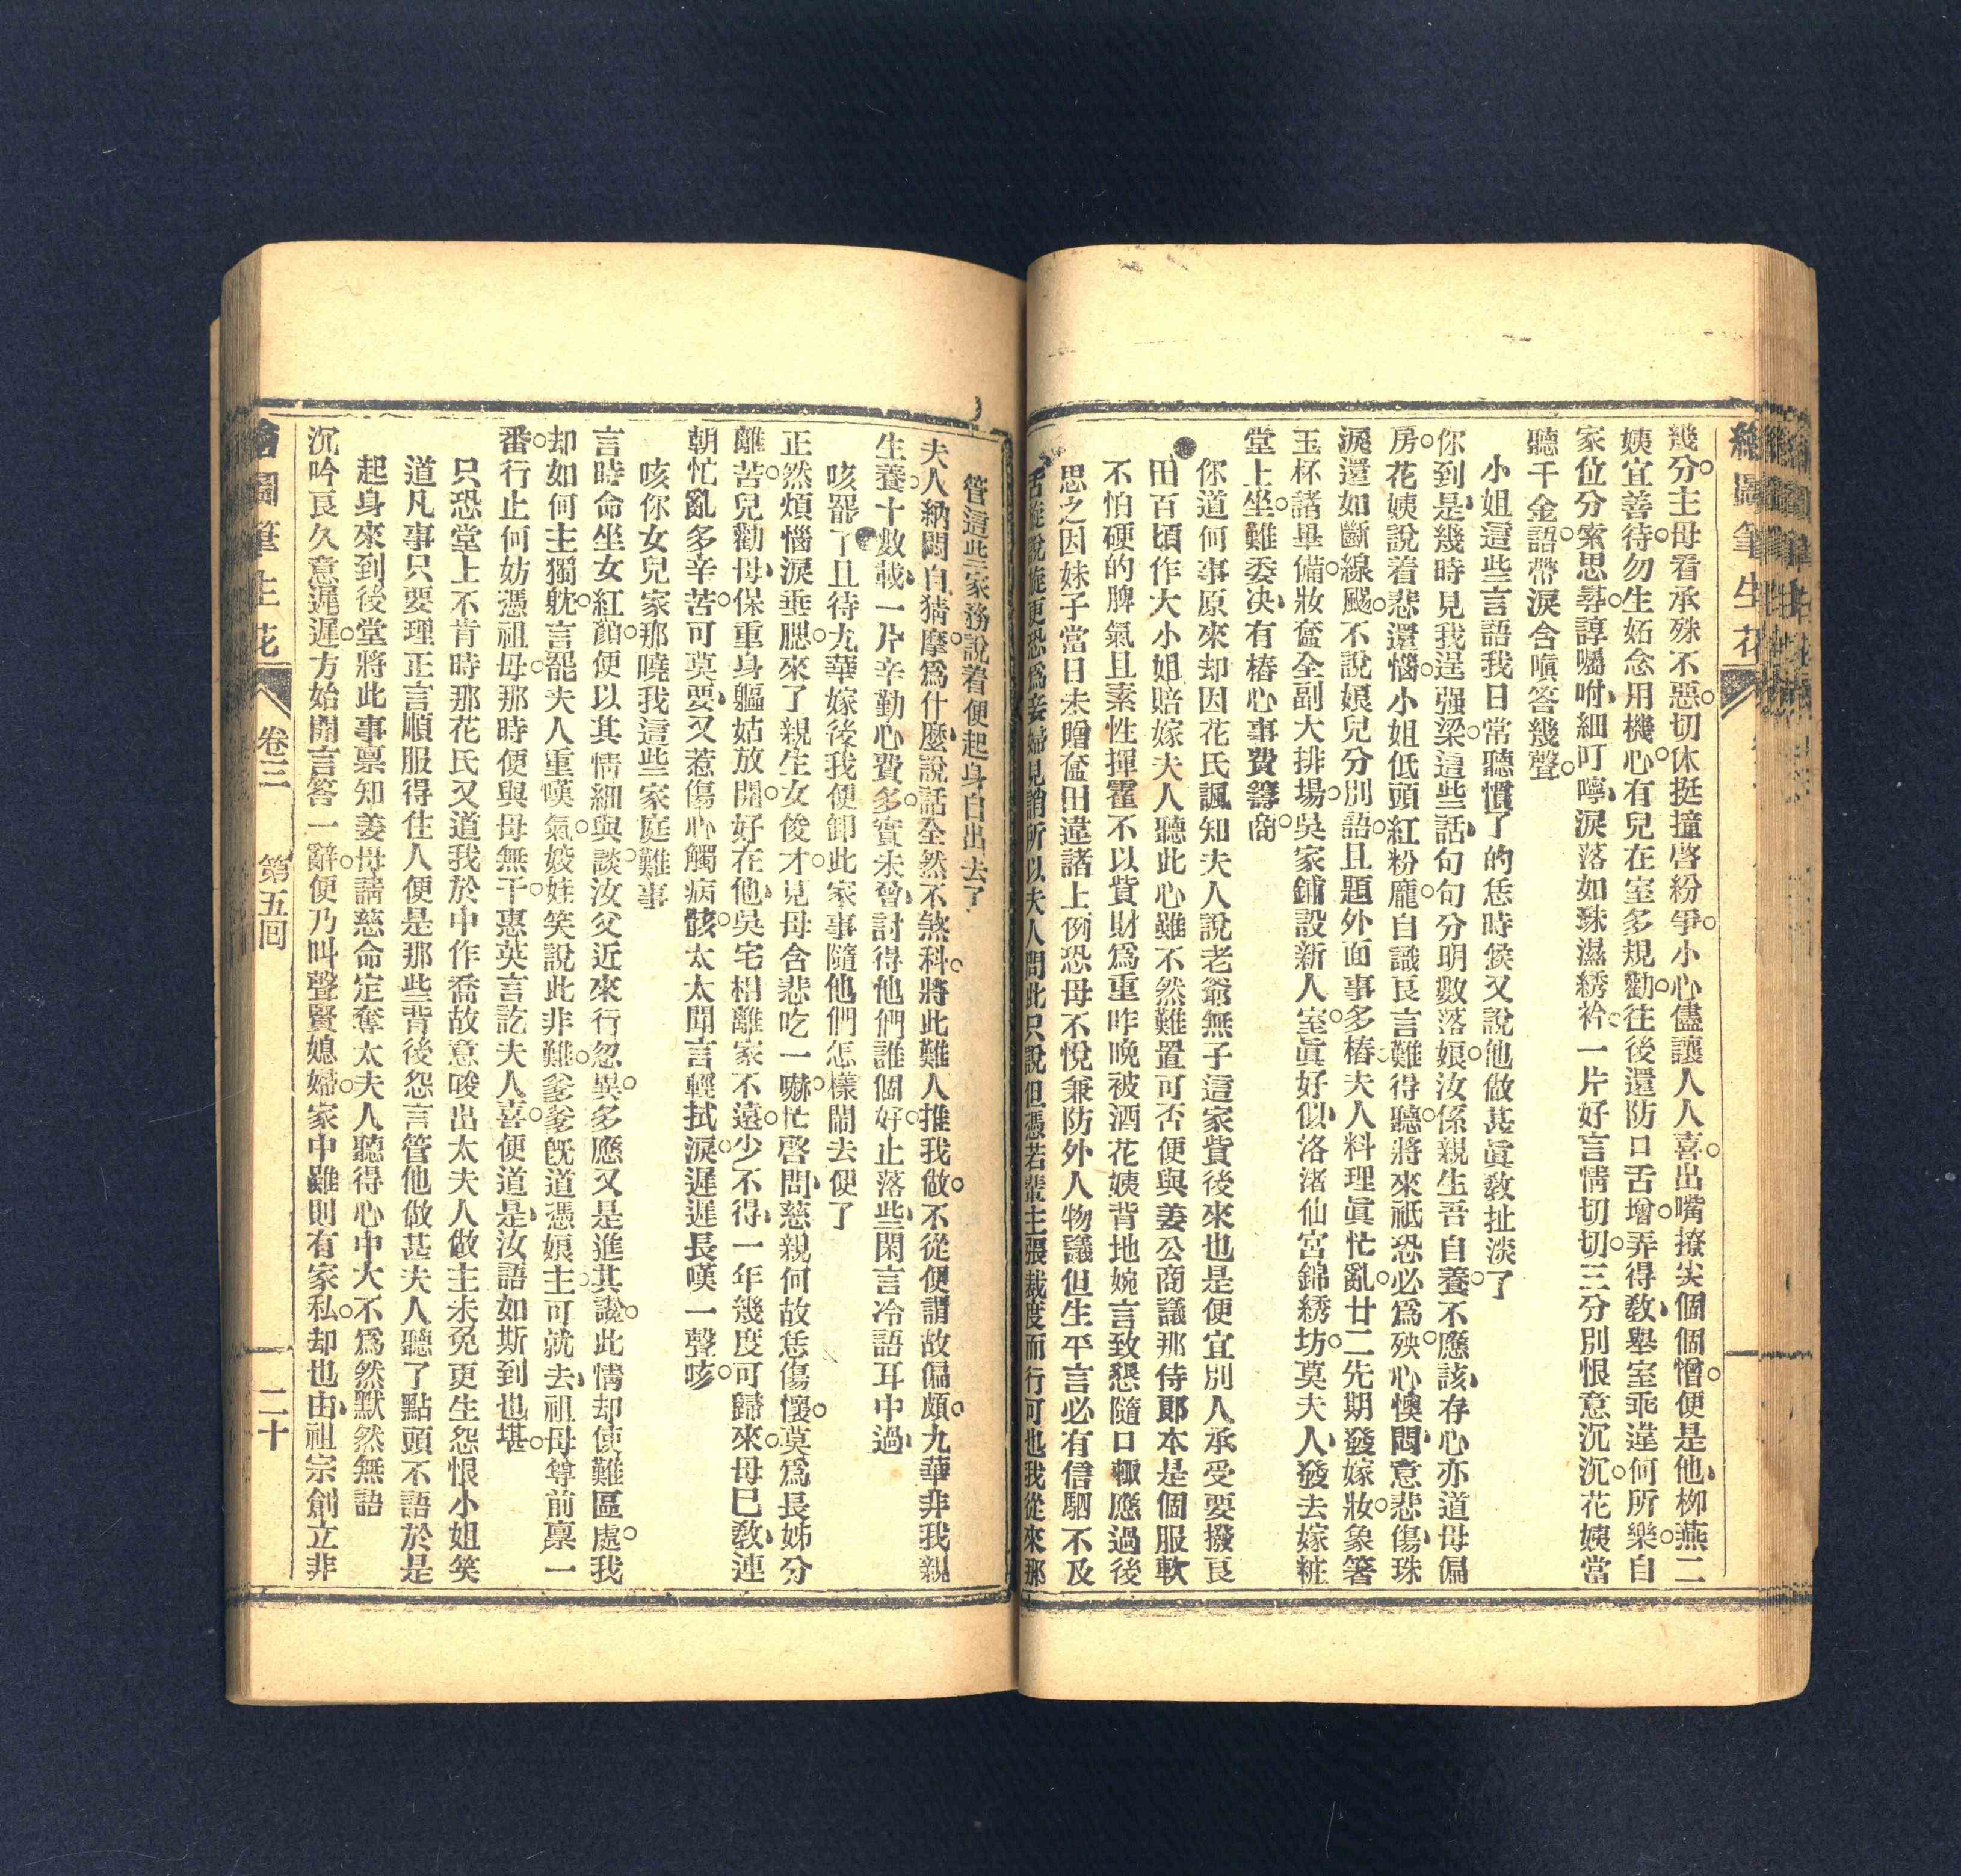 繪圖筆生花
幾分主母看承殊不惡切休挺撞啓紛爭小心儘讓人人喜出嘴撩尖個個憎便是他柳燕二
姨宜善待勿生妬念用機心有兒在室多規勸往後還防口舌增弄得敎舉室乖違何所樂自
家位分索思尋諄囑咐細叮嚀淚落如珠濕綉衿一片好言情切切三分別恨意沉沉花姨當
聽千金語帶淚含嗔答幾聲
小姐這些言語我日常聽慣了的恁時候又說他做甚眞敎扯淡了
你到是幾時見我逞强梁這些話句句分明數落娘汝係親生吾自養不應該存心亦道母偏
房花姨說着悲還惱小姐低頭紅粉龐自識良言難得聽將來祇恐必爲殃心懊悶意悲傷珠
淚還如斷線颺不說娘兒分別語且題外面事多樁夫人料理眞忙亂廿二先期發嫁妝象箸
玉杯諸畢備妝奩全副大排場吳家鋪設新人室眞好似洛渚仙宮錦綉坊莫夫人發去嫁粧
堂上坐難委决有樁心事費籌商
你道何事原來却因花氏諷知夫人說老爺無子這家貲後來也是便宜別人承受要撥良
田百頃作大小姐賠嫁夫人聽此心雖不然難置可否便與姜公商議那侍郞本是個服軟
不怕硬的脾氣且素性揮霍不以貲財爲重昨晚被酒花姨背地婉言致懇隨口輒應過後
思之因妹子當日未贈奩田違諸上例恐母不悅兼防外人物議但生平言必有信駟不及
舌旋說旋更恐爲妾婦見誚所以夫人問此只說但憑若輩主張裁度而行可也我從來那
管這些家務說着便起身自出去了
夫人納悶自猜摩爲什麽說話全然不煞科將此難人推我做不從便謂故偏頗九華非我親
生養十數載一片辛勤心費多實未曾討得他們誰個好止落些閑言冷語耳中過
咳罷了且待九華嫁後我便卸此家事隨他們怎樣鬧去便了
正然煩惱淚垂腮來了親生女俊才見母含悲吃一嚇忙啓問慈親何故恁傷懷莫爲長姊分
離苦兒勸母保重身軀姑放開好在他吳宅相離家不遠少不得一年幾度可歸來母已敎連
朝忙亂多辛苦可莫要又惹傷心觸病骸太太聞言輕拭淚遲遲長嘆一聲咳
咳你女兒家那曉我這些家庭難事
言時命坐女紅顏便以其情細與談汝父近來行忽異多應又是進其讒此情却使難區處我
却如何主獨躭言罷夫人重嘆氣姣娃笑說此非難爹爹旣道憑娘主可就去祖母尊前禀一
番行止何妨憑祖母那時便與母無干惠英言訖夫人喜便道是汝語如斯到也堪
只恐堂上不肯時那花氏又道我於中作喬故意唆出太夫人做主未免更生怨恨小姐笑
道凡事只要理正言順服得住人便是那些背後怨言管他做甚夫人聽了點頭不語於是
起身來到後堂將此事禀知姜母請慈命定奪太夫人聽得心中大不爲然默然無語
沉吟良久意遲遲方始開言答一辭便乃叫聲賢媳婦家中雖則有家私却也由祖宗創立非
繪圖筆生花
卷三
第五回
二十